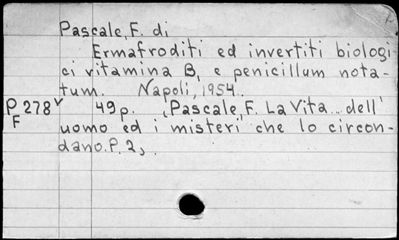 Pascale, F. di
Ermafroditi ed invertiti biologi-
ci vitamina B, e penicillum nota-
tum. Napoli, 1954.
P 278v 49p. (Pascale, F. La Vita... dell'
F uomo ed i misteri che lo circon-
dano. P. 2)